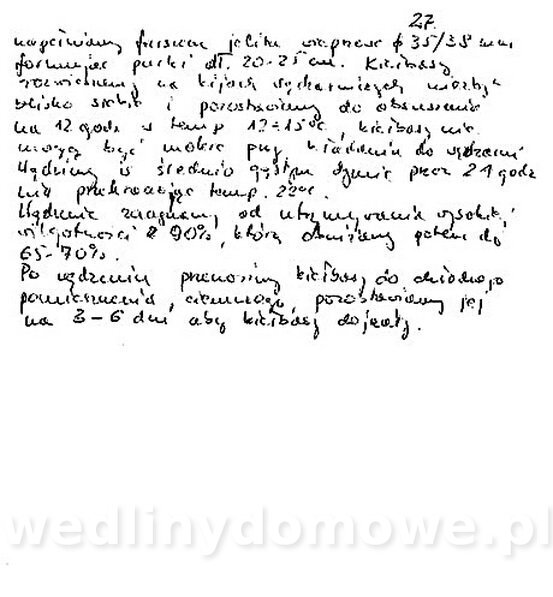 27.
napełniamy farszem jelita wieprzowe φ 35/38 mm
formując parki dł. 20-25 cm. Kiełbasy
rozwieszamy na kijach wędzarniczych niezbyt
blisko siebie i pozostawiamy do obsuszenia
na 12 godz w temp 12-15°C, kiełbasy nie
mogą być mokre przy wkładaniu do wędzarni
Wędzimy w średnio gęstym dymie przez 24 godz
nie przekraczając temp. 22°C.
Wędzenie zaczynamy od utrzymywania wysokiej
wilgotności 90%, którą obniżamy potem do
65-70%.
Po wędzeniu przenosimy kiełbasy do chłodnego
pomieszczenia, ciemnego, pozostawiamy jej
na 3-6 dni aby kiełbasy dojrzały.
wedlinydomowe.pl